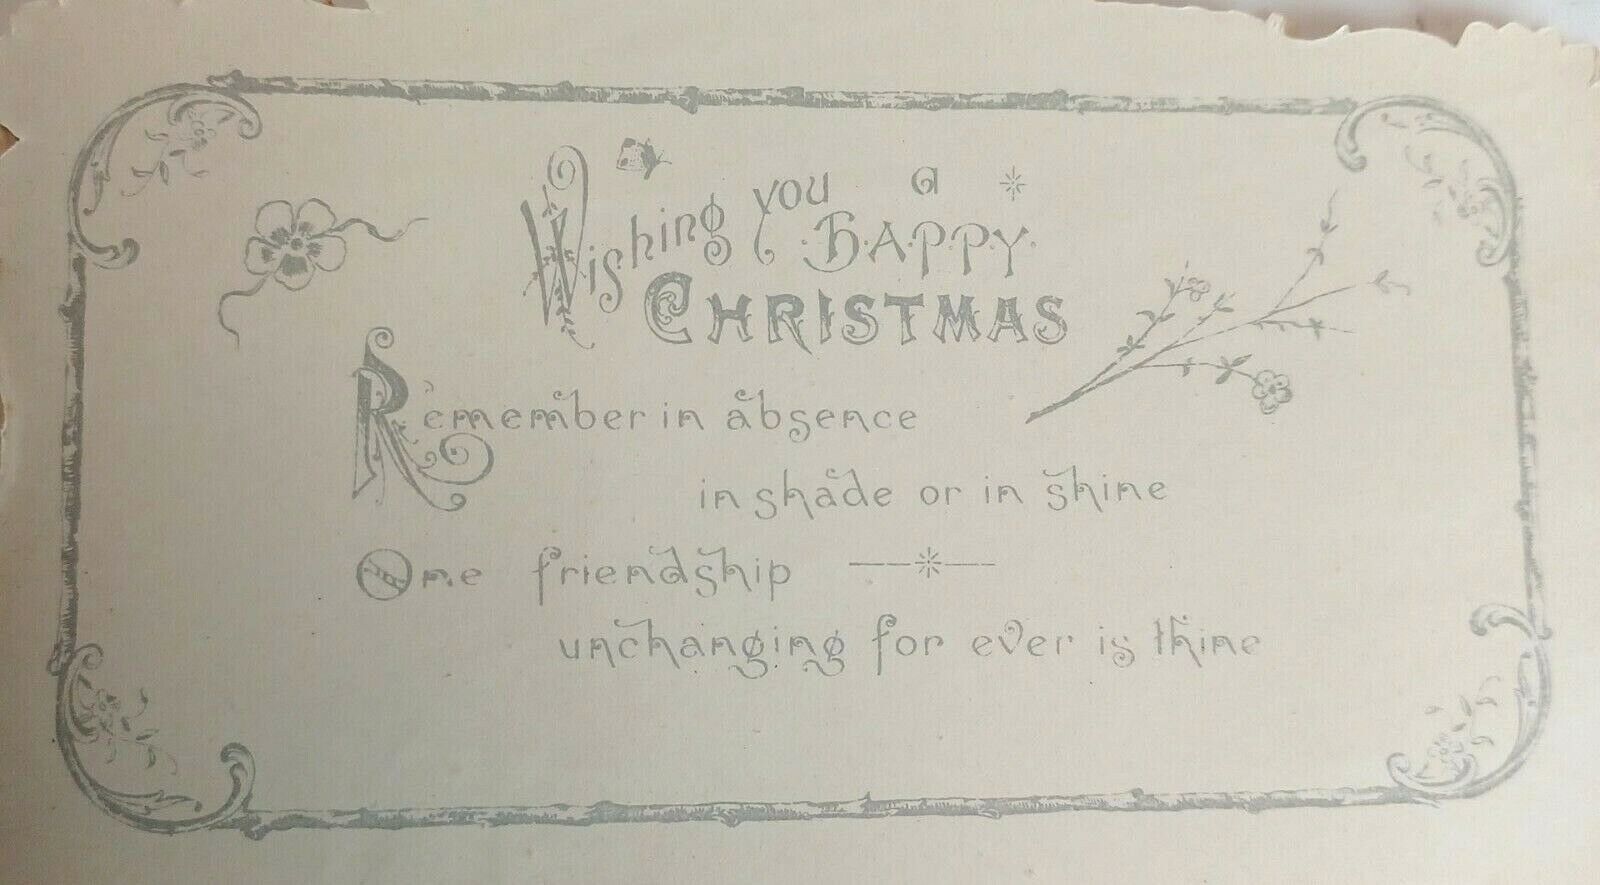 Wishing you a
H.A.P.P.Y.
CHRISTMAS
Remember in absence
in shade or in shine
One friendship
unchanging for ever is thine